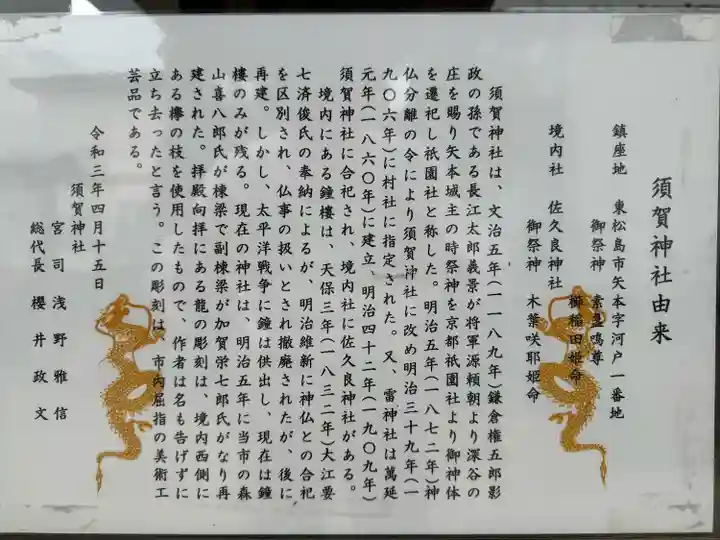 須賀神社由来
鎮座地 東松島市矢本字河戸一番地
御祭神 素盞鳴尊
櫛稲田姫命
境内社 佐久良神社
御祭神 木華咲耶姫命
須賀神社は、文治五年(一一八九年)鎌倉権五郎影
政の孫である長江太郎義景が将軍源頼朝より深谷の
庄を賜り矢本城主の時祭神を京都祇園社より御神体
を遷祀し祇園社と称した。明治五年(一八七二年)神
仏分離の令により須賀神社に改め明治三十九年(一
九〇六年)に村社に指定された。又、雷神社は萬延
元年(一八六〇年)に建立、明治四十二年(一九〇九年)
須賀神社に合祀され、境内社に佐久良神社がある。
境内にある鐘樓は、天保三年(一八三二年)大江要
七済俊氏の奉納によるが、明治維新に神仏との合祀
を区別され、仏事の扱いとされ撤廃されたが、後に
再建。しかし、太平洋戦争に鐘は供出し、現在は鐘
樓のみが残る。現在の神社は、明治五年に当市の森
山喜八郎氏が棟梁で副棟梁が加賀栄七郎氏がなり再
建された。拝殿向拝にある龍の彫刻は、境内西側に
ある欅の枝を使用したもので、作者は名も告げずに
立ち去ったと言う。この彫刻は、市内屈指の美術工
芸品である。
令和三年四月十五日
須賀神社
宮司 浅野雅信
総代長 櫻井政文